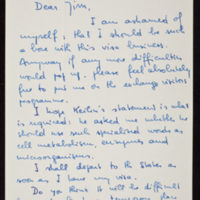 Dear Jim,
I am ashamed of
myself, that I should be such
a bore with this visa business.
Anyway if any more difficulties
would pop up, please feel absolutely
free to put me on the exchange visitors
programme.
I hope Keilin's statement is what
is required: he asked me whether he
should use such specialised words as
cell metabolism, enzymes and
microorganisms.
I shall depart to the States as
soon as I have my visa.
Do you think it will be difficult